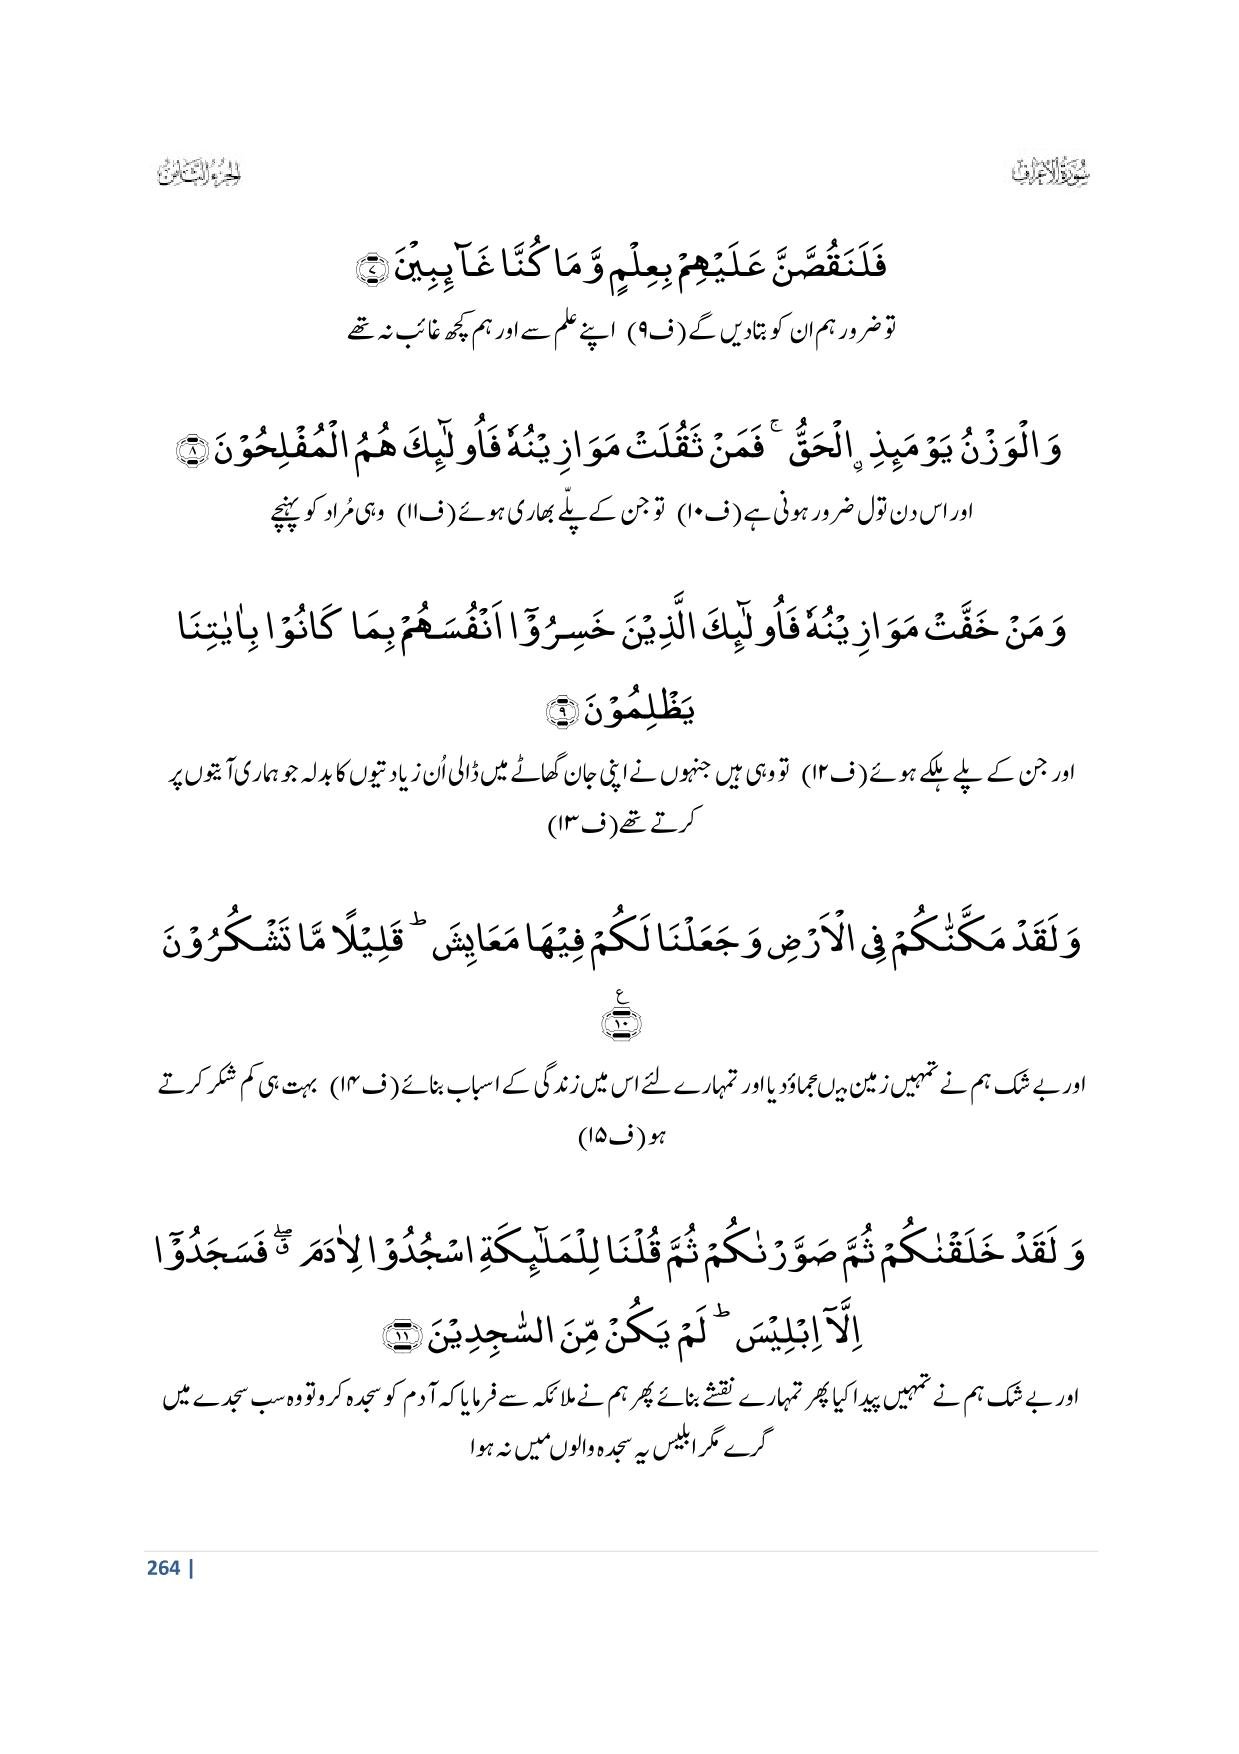 سُورَةُ الْاَعْرَاف
الجزء الثامن
فَلَنَقُصَّنَّ عَلَيْهِمْ بِعِلْمٍ وَّ مَا كُنَّا غَآئِبِيْنَ ﴿۷﴾
تو ضرور ہم ان کو بتادیں گے (ف۹) اپنے علم سے اور ہم کچھ غائب نہ تھے
وَ الْوَزْنُ يَوْمَئِذِ ۣالْحَقُّ ۚ فَمَنْ ثَقُلَتْ مَوَازِيْنُهٗ فَاُولٰٓئِكَ هُمُ الْمُفْلِحُوْنَ ﴿۸﴾
اور اس دن تول ضرور ہونی ہے (ف۱۰) تو جن کے پلّے بھاری ہوئے (ف۱۱) وہی مُراد کو پہنچے
وَ مَنْ خَفَّتْ مَوَازِيْنُهٗ فَاُولٰٓئِكَ الَّذِيْنَ خَسِرُوْٓا اَنْفُسَهُمْ بِمَا كَانُوْا بِاٰيٰتِنَا
يَظْلِمُوْنَ ﴿۹﴾
اور جن کے پلے ہلکے ہوئے (ف۱۲) تو وہی ہیں جنہوں نے اپنی جان گھاٹے میں ڈالی اُن زیادتیوں کا بدلہ جو ہماری آیتوں پر
کرتے تھے (ف۱۳)
وَ لَقَدْ مَكَّنّٰكُمْ فِى الْاَرْضِ وَ جَعَلْنَا لَكُمْ فِيْهَا مَعَايِشَ ؕ قَلِيْلًا مَّا تَشْكُرُوْنَ
﴿۱۰﴾ ع
اور بے شک ہم نے تمہیں زمین میں جماؤ دیا اور تمہارے لئے اس میں زندگی کے اسباب بنائے (ف۱۴) بہت ہی کم شکر کرتے
ہو (ف۱۵)
وَ لَقَدْ خَلَقْنٰكُمْ ثُمَّ صَوَّرْنٰكُمْ ثُمَّ قُلْنَا لِلْمَلٰٓئِكَةِ اسْجُدُوْا لِاٰدَمَ ۖق فَسَجَدُوْٓا
اِلَّآ اِبْلِيْسَ ؕ لَمْ يَكُنْ مِّنَ السّٰجِدِيْنَ ﴿۱۱﴾
اور بے شک ہم نے تمہیں پیدا کیا پھر تمہارے نقشے بنائے پھر ہم نے ملائکہ سے فرمایا کہ آدم کو سجدہ کرو تو وہ سب سجدے میں
گرے مگر ابلیس یہ سجدہ والوں میں نہ ہوا
264 |